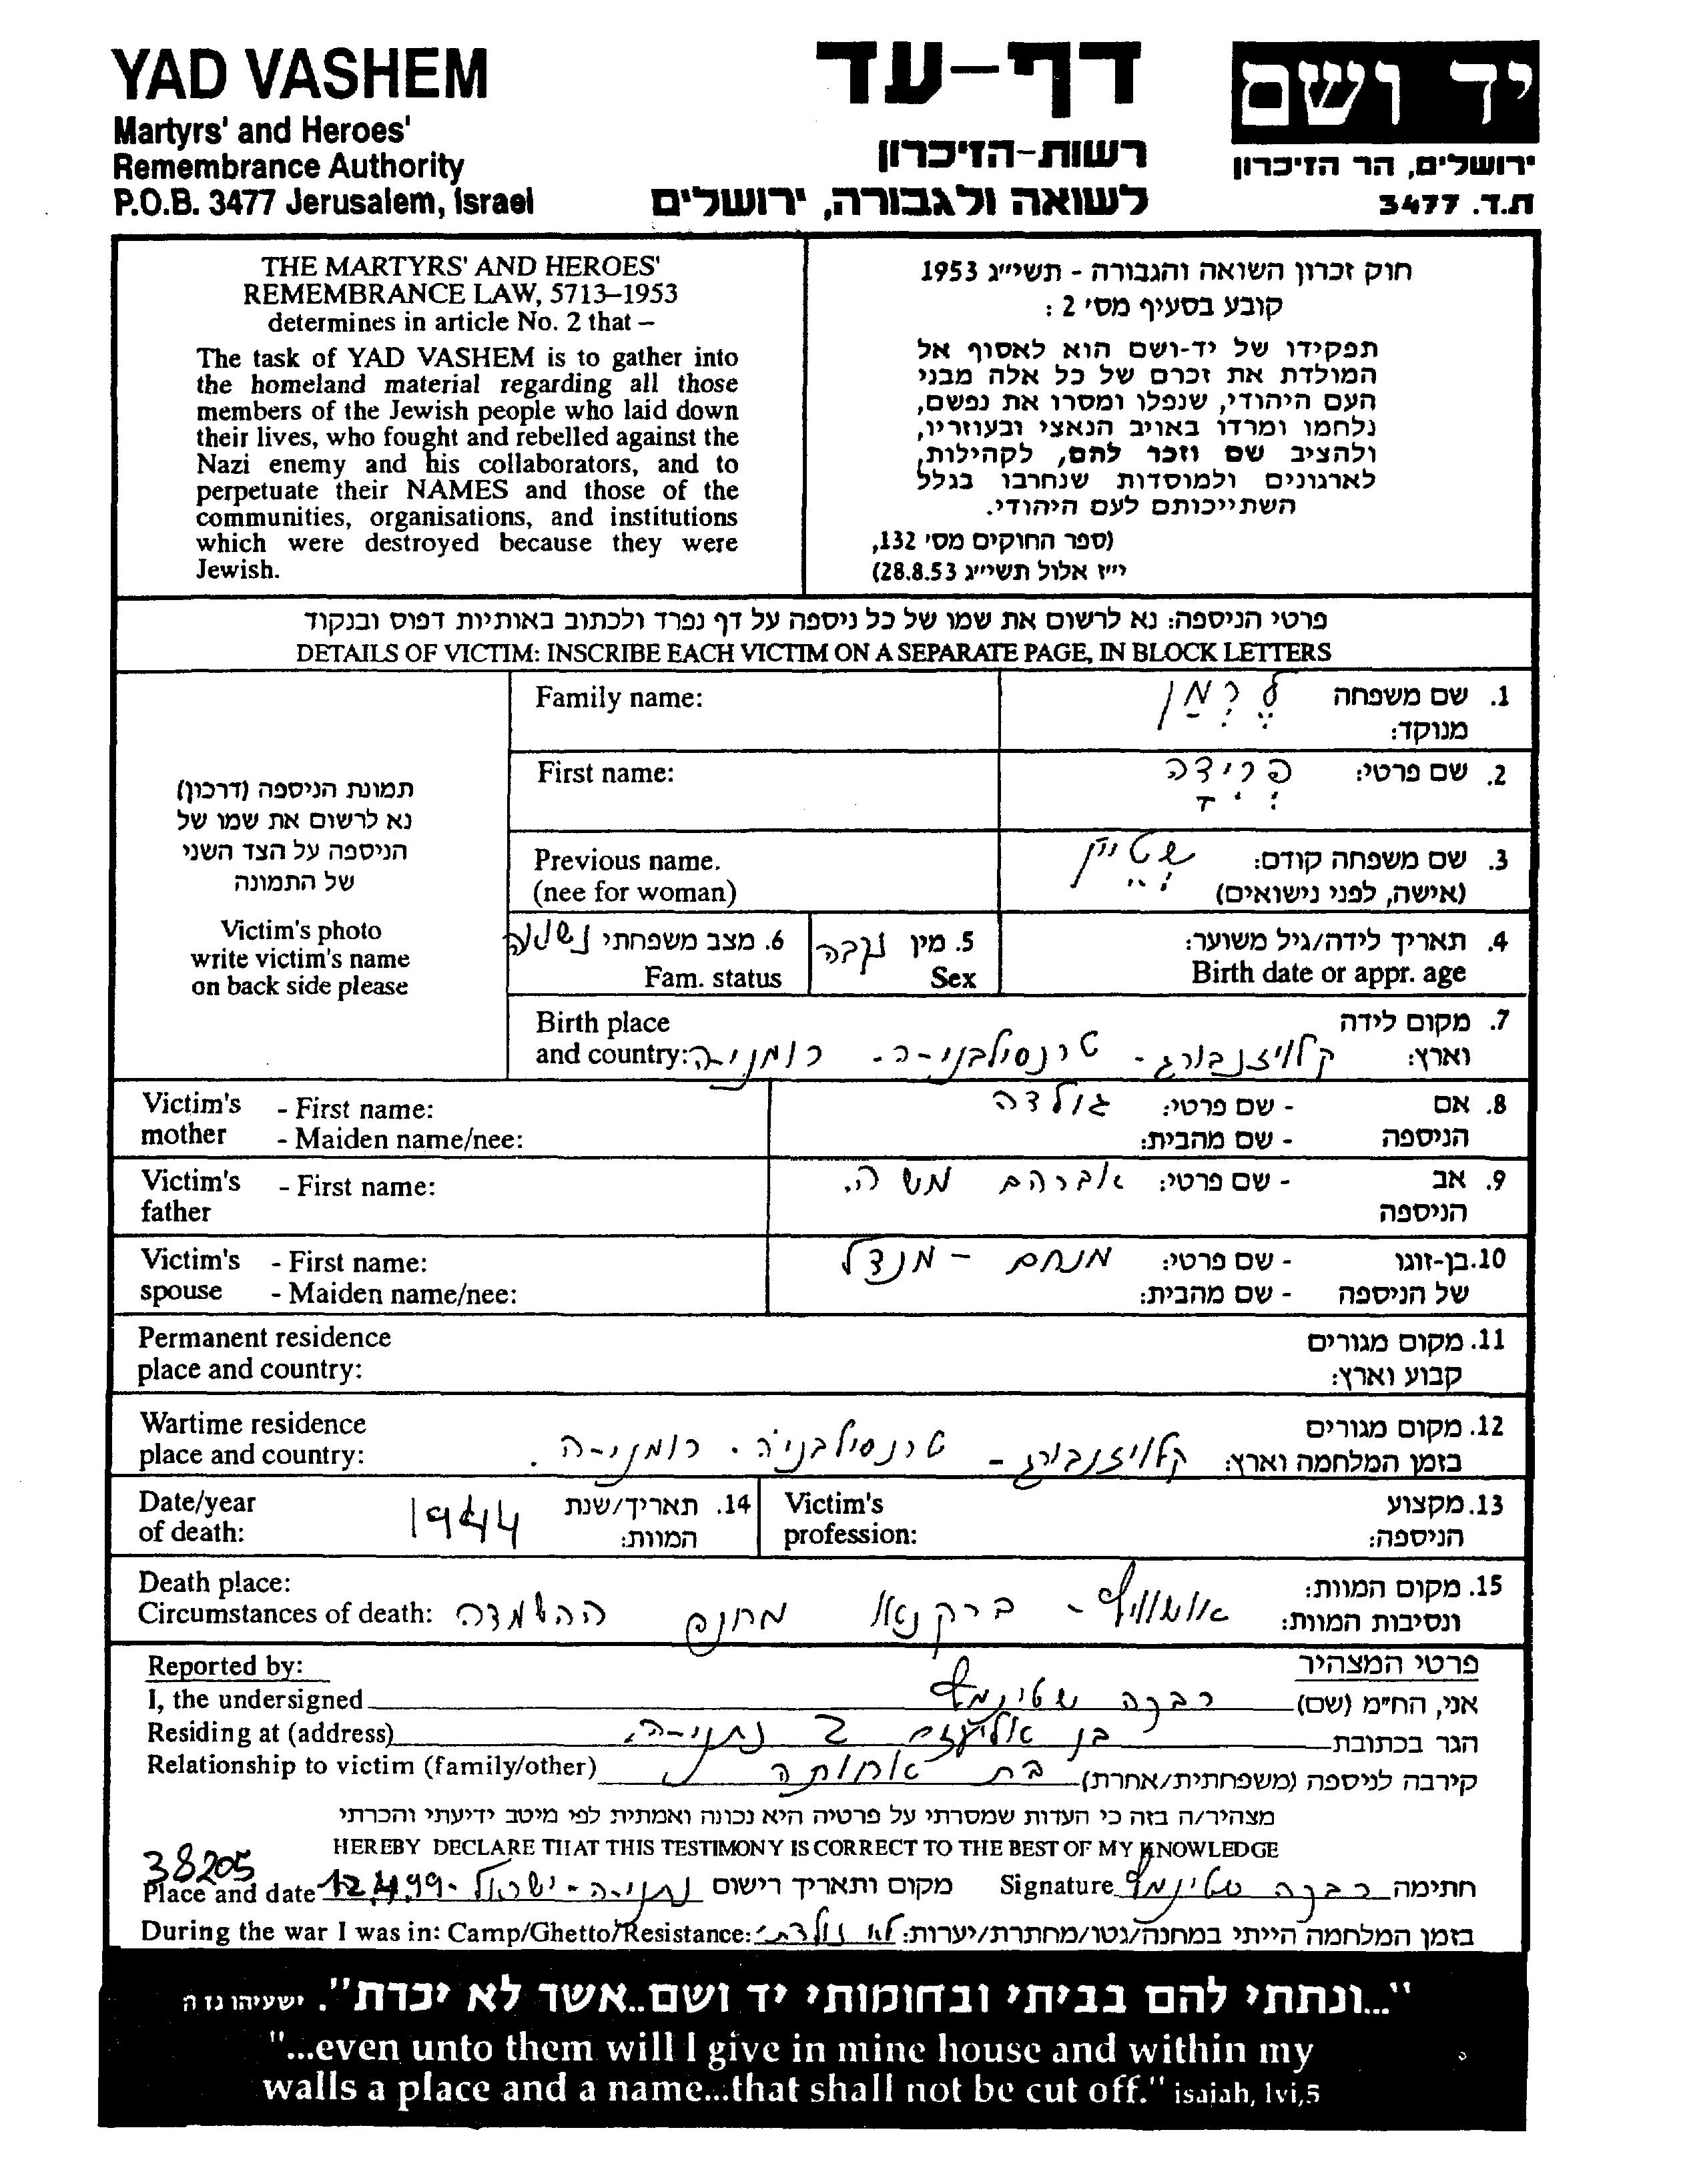 YAD VASHEM
Martyrs' and Heroes'
Remembrance Authority
P.O.B. 3477 Jerusalem, Israel
דף-עד
רשות-הזיכרון
לשואה ולגבורה, ירושלים
יד ושם
ירושלים, הר הזיכרון
ת.ד. 3477
THE MARTYRS' AND HEROES'
REMEMBRANCE LAW, 5713–1953
determines in article No. 2 that –
The task of YAD VASHEM is to gather into
the homeland material regarding all those
members of the Jewish people who laid down
their lives, who fought and rebelled against the
Nazi enemy and his collaborators, and to
perpetuate their NAMES and those of the
communities, organisations, and institutions
which were destroyed because they were
Jewish.
חוק זכרון השואה והגבורה - תשי״ג 1953
קובע בסעיף מס׳ 2 :
תפקידו של יד-ושם הוא לאסוף אל
המולדת את זכרם של כל אלה מבני
העם היהודי, שנפלו ומסרו את נפשם,
נלחמו ומרדו באויב הנאצי ובעוזריו,
ולהציב שם וזכר להם, לקהילות,
לארגונים ולמוסדות שנחרבו בגלל
השתייכותם לעם היהודי.
(ספר החוקים מס׳ 132,
י״ז אלול תשי״ג 28.8.53)
פרטי הניספה: נא לרשום את שמו של כל ניספה על דף נפרד ולכתוב באותיות דפוס ובנקוד
DETAILS OF VICTIM: INSCRIBE EACH VICTIM ON A SEPARATE PAGE, IN BLOCK LETTERS
תמונת הניספה (דרכון)
נא לרשום את שמו של
הניספה על הצד השני
של התמונה
Victim's photo
write victim's name
on back side please
1. שם משפחה לֶרְמַן Family name:
מנוקד:
2. שם פרטי: פְרִידָה First name:
3. שם משפחה קודם: שְטֵיין Previous name.
(אישה, לפני נישואים) (nee for woman)
4. תאריך לידה/גיל משוער: 5. מין נקבה 6. מצב משפחתי נשואה
Birth date or appr. age Sex Fam. status
7. מקום לידה Birth place
וארץ: קלויזנבורג - טרנסילבניה - רומניה and country:
8. אם - שם פרטי: גולדה Victim's - First name:
הניספה - שם מהבית: mother - Maiden name/nee:
9. אב - שם פרטי: אברהם משה. Victim's - First name:
הניספה father
10. בן-זוגו - שם פרטי: מנחם - מנדל Victim's - First name:
של הניספה - שם מהבית: spouse - Maiden name/nee:
11. מקום מגורים Permanent residence
קבוע וארץ: place and country:
12. מקום מגורים Wartime residence
בזמן המלחמה וארץ: קלויזנבורג - טרנסילבניה - רומניה. place and country:
13. מקצוע Victim's 14. תאריך/שנת 1944 Date/year
הניספה: profession: המוות: of death:
15. מקום המוות: Death place:
ונסיבות המוות: אושוויץ - ברקנאו מחנה ההשמדה Circumstances of death:
פרטי המצהיר Reported by:
אני, הח״מ (שם) רבקה שטינמץ I, the undersigned
הגר בכתובת בן אליעזר 2 נתניה. Residing at (address)
קירבה לניספה (משפחתית/אחרת) בת אחותה Relationship to victim (family/other)
מצהיר/ה בזה כי העדות שמסרתי על פרטיה היא נכונה ואמתית לפי מיטב ידיעתי והכרתי
HEREBY DECLARE THAT THIS TESTIMONY IS CORRECT TO THE BEST OF MY KNOWLEDGE
38205
חתימה רבקה שטינמץ Signature מקום ותאריך רישום נתניה - ישראל - 12.4.99 Place and date
בזמן המלחמה הייתי במחנה/גטו/מחתרת/יערות: לא נולדתי During the war I was in: Camp/Ghetto/Resistance:
"...ונתתי להם בביתי ובחומותי יד ושם..אשר לא יכרת". ישעיהו נו ה
"...even unto them will I give in mine house and within my
walls a place and a name...that shall not be cut off." isaiah, lvi,5